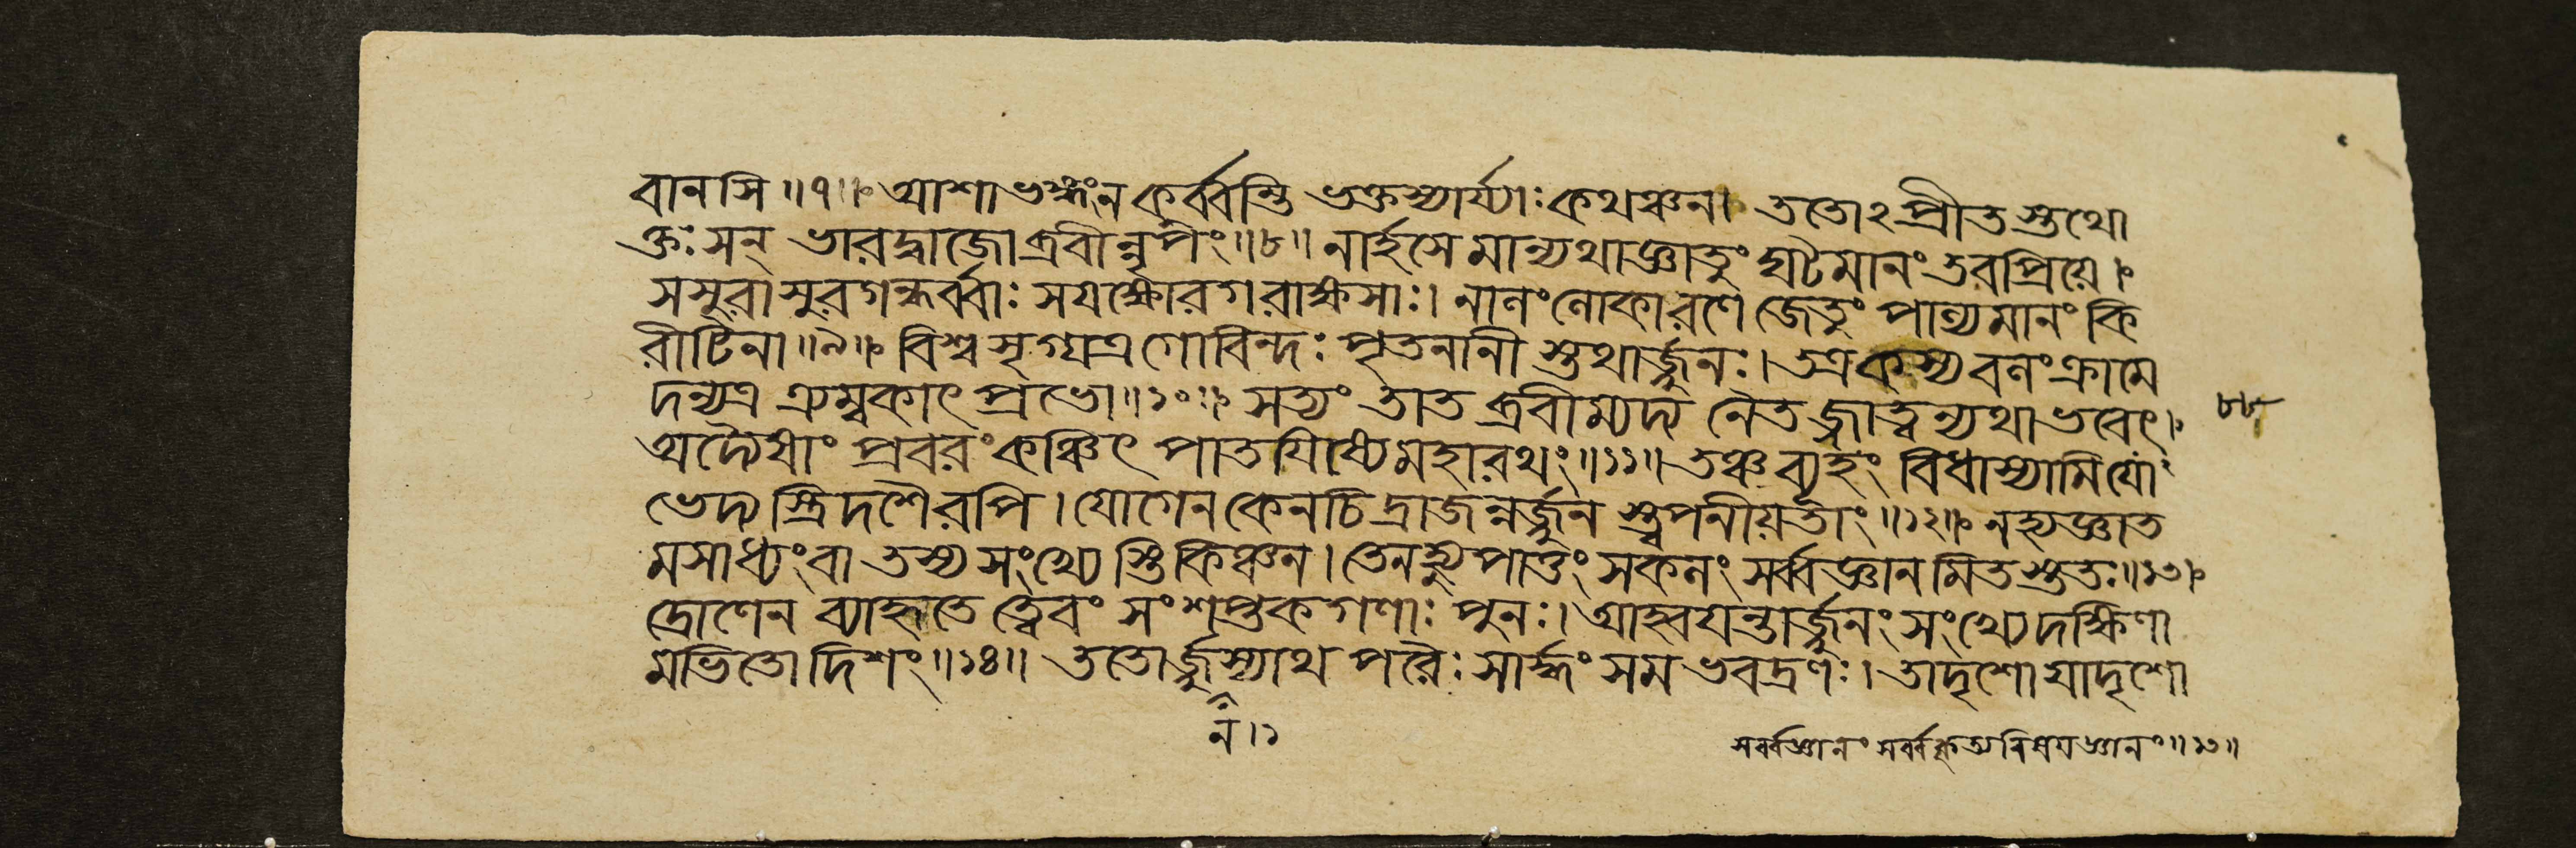 বানসি ॥৭॥ আশাভঙ্গংন কুর্ব্বন্তি ভক্তস্যার্য্যাঃ কথঞ্চন। ততোঽপ্রীতস্তথো
ক্তঃ সন্ ভারদ্বাজোব্রবীন্নৃপং ॥৮॥ নার্হসে মান্যথাজ্ঞাতুং ঘটমানং তবপ্রিয়ে।
সসুরাসুরগন্ধর্ব্বাঃ সযক্ষোরগরাক্ষসাঃ। নালংলোকারণে জেতুং পাল্যমানং কি
রীটিনা ॥৯॥ বিশ্বসৃগ্যত্র গোবিন্দঃ পৃতনানী স্তথার্জ্জুনঃ। তত্রকস্যবলংক্রামে
দন্যত্র ত্র্যম্বকাৎ প্রভো ॥১০॥ সত্যং তাত ব্রবীম্যদ্য নৈতজ্জাত্বন্যথাভবেৎ।
৮৮
অদ্যৈষাং প্রবরং কঞ্চিৎ পাতয়িষ্যেমহারথং ॥১১॥ তঞ্চব্যূহং বিধাস্যামিযো
ভেদ্যস্ত্রিদশৈরপি। যোগেন কেনচিদ্রাজন্নর্জ্জুনস্ত্বপনীয়তাং ॥১২॥ নহ্যজ্ঞাত
মসাধ্যংবা তস্য সংখ্যেস্তিকিঞ্চন। তেনহ্যুপাত্তং সকলং সর্ব্বজ্ঞানমিতস্ততঃ ॥১৩॥
দ্রোণেন ব্যাহৃতে ত্বেবং সংশপ্তকগণাঃ পুনঃ। আহ্বয়ন্তার্জ্জুনং সংখ্যেদক্ষিণা
মভিতো দিশং ॥১৪॥ ততোর্জ্জুস্যাথ পরৈঃ সার্দ্ধং সমভবদ্রণঃ। তাদৃশো যাদৃশো
ন।১
সর্ব্বজ্ঞানং সর্ব্ব বিষয়জ্ঞানং ॥১৩॥